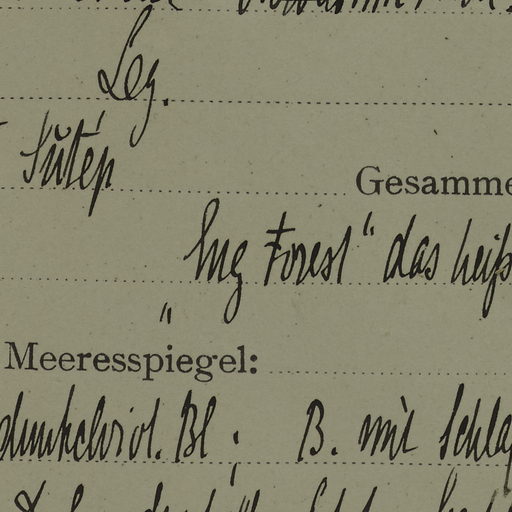 Leg.
Sŭtép
Gesamme
Eng Forest" das heiß
Meeresspiegel:
dunkelviol. Bl; B. mit Schla